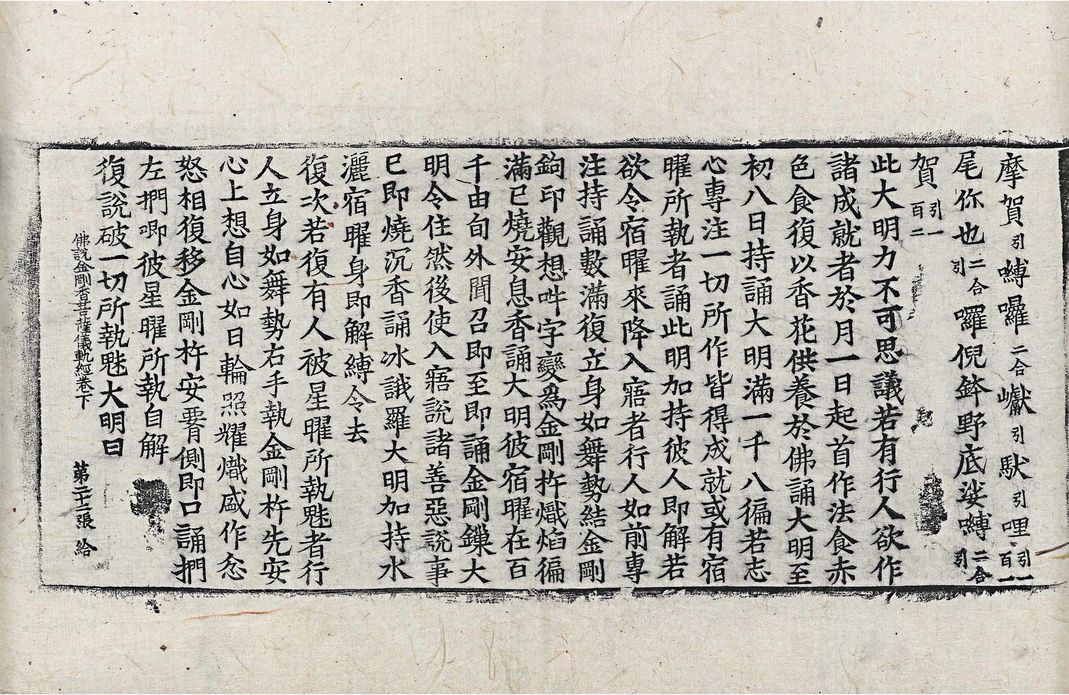 摩賀引嚩囉二合巘引馱引哩引一百一
尾你也二合引囉倪鉢野底娑嚩二合引
賀引一百二
此大明力不可思議若有行人欲作
諸成就者於月一日起首作法食赤
色食復以香花供養於佛誦大明至
初八日持誦大明滿一千八徧若志
心專注一切所作皆得成就或有宿
曜所執者誦此明加持彼人即解若
欲令宿曜來降入寤者行人如前專
注持誦數滿復立身如舞勢結金剛
鉤印觀想吽字變爲金剛杵熾焰徧
滿已燒安息香誦大明彼宿曜在百
千由旬外聞召即至即誦金剛鏁大
明令住然後使入寤說諸善惡說事
已即燒沉香誦冰誐羅大明加持水
灑宿曜身即解縛令去
復次若復有人被星曜所執魅者行
人立身如舞勢右手執金剛杵先安
心上想自心如日輪照耀熾盛作忿
怒相復移金剛杵安署側即口誦捫
左捫唧彼星曜所執自解
復說破一切所執魅大明曰
佛說金剛香菩薩儀軌經卷下 第二十二張 給